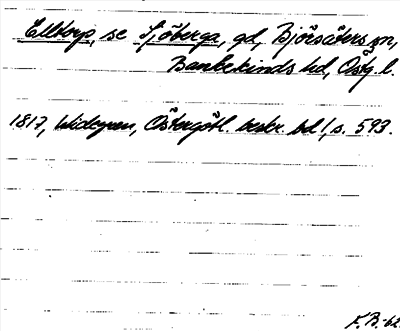 Elltorp, se Sjöberga, gd, Björsäters sn,
Bankekinds hd, Östg. l.
1817, Widegren, Östergötl. beskr. bd 1, s. 593.
F.B. -62